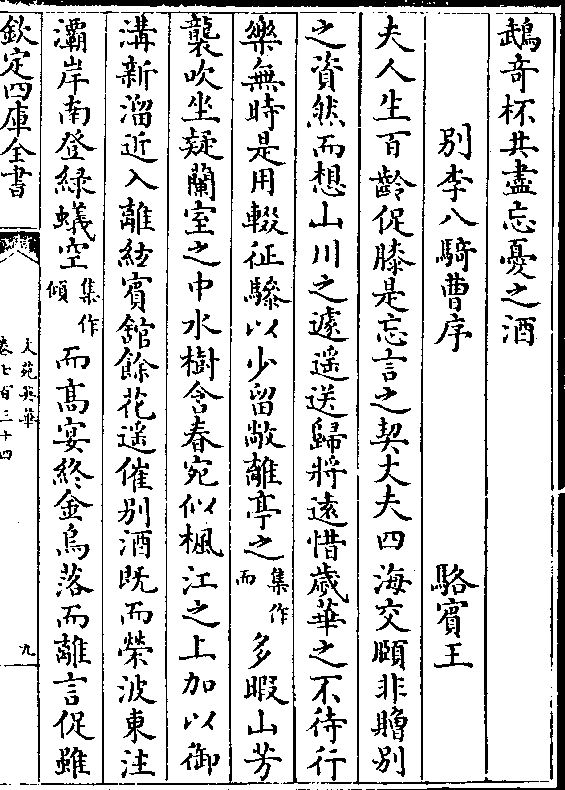 鵡奇杯共盡忘憂之酒
別李八騎曹序　駱賓王
夫人生百齡促膝是忘言之契丈夫四海交頤非贈別
之資然而想山川之遽遥送歸將遠惜歲華之不待行
樂無時是用輟征驂以少留敞離亭之集作而多暇山芳
襲吹坐疑蘭室之中水樹含春宛似楓江之上加以御
溝新溜近入離絃賓舘餘花遥催别酒既而榮波東注
灞岸南登緑蟻空集作傾而髙宴終金烏落而離言促雖
欽定四庫全書
文苑英華
卷七百三十四
九